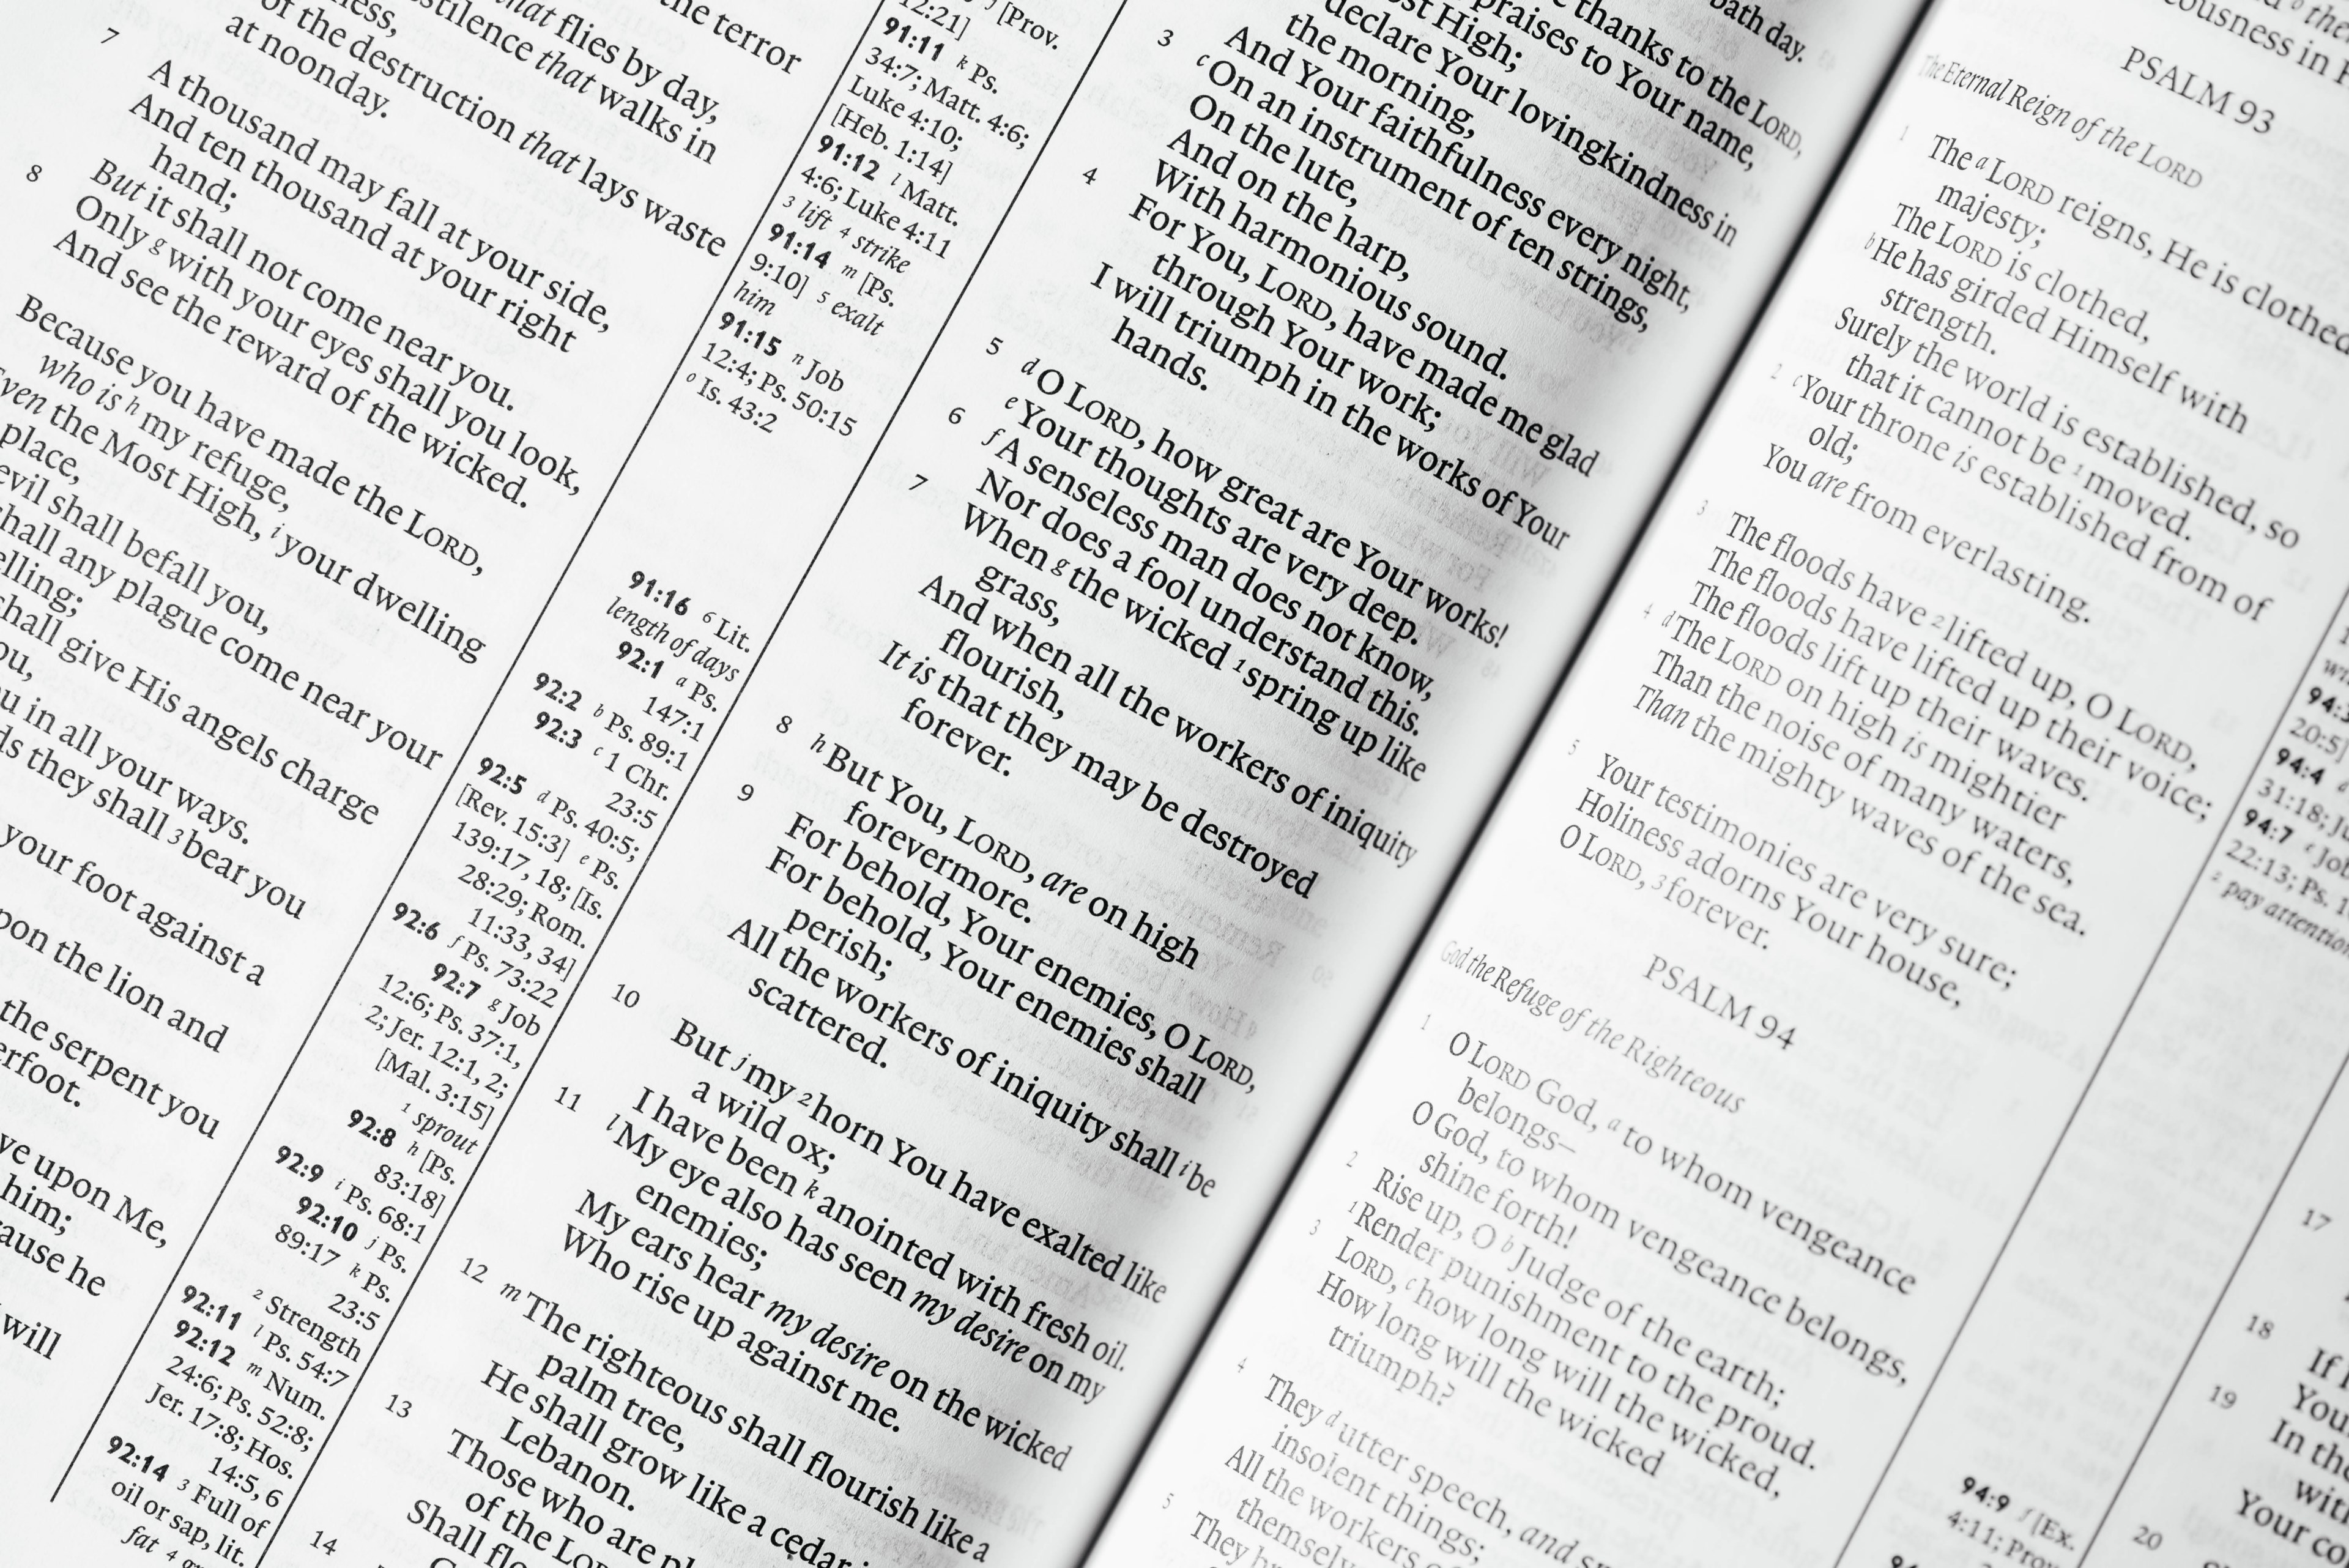 the terror
that flies by day,
stilence that walks in
of the destruction that lays waste
at noonday.
7
A thousand may fall at your side,
And ten thousand at your right
hand;
But it shall not come near you.
8
Only g with your eyes shall you look,
And see the reward of the wicked.
Because you have made the LORD,
who is h my refuge,
Even the Most High, i your dwelling
place,
evil shall befall you,
shall any plague come near your
elling;
shall give His angels charge
ou,
u in all your ways.
ds they shall 3 bear you
your foot against a
pon the lion and
the serpent you
erfoot.
ve upon Me,
him;
ause he
will
12:21] j [Prov.
91:11 k Ps.
34:7; Matt. 4:6;
Luke 4:10;
[Heb. 1:14]
91:12 l Matt.
4:6; Luke 4:11
3 lift 4 strike
91:14 m [Ps.
9:10] 5 exalt
him
91:15 n Job
12:4; Ps. 50:15
o Is. 43:2
91:16 6 Lit.
length of days
92:1 a Ps.
147:1
92:2 b Ps. 89:1
92:3 c 1 Chr.
23:5
92:5 d Ps. 40:5;
[Rev. 15:3] e Ps.
139:17, 18; [Is.
28:29; Rom.
11:33, 34]
92:6 f Ps. 73:22
92:7 g Job
12:6; Ps. 37:1,
2; Jer. 12:1, 2;
[Mal. 3:15]
1 sprout
92:8 h [Ps.
83:18]
92:9 i Ps. 68:1
92:10 j Ps.
89:17 k Ps.
23:5
2 Strength
92:11 l Ps. 54:7
92:12 m Num.
24:6; Ps. 52:8;
Jer. 17:8; Hos.
14:5, 6
92:14 3 Full of
oil or sap, lit.
fat 4
bath day.
thanks to the LORD,
praises to Your name,
ost High;
declare Your lovingkindness in
the morning,
And Your faithfulness every night,
3
c On an instrument of ten strings,
On the lute,
And on the harp,
With harmonious sound.
4
For You, LORD, have made me glad
through Your work;
I will triumph in the works of Your
hands.
5
d O LORD, how great are Your works!
e Your thoughts are very deep.
6
f A senseless man does not know,
Nor does a fool understand this.
7
When g the wicked 1 spring up like
grass,
And when all the workers of iniquity
flourish,
It is that they may be destroyed
forever.
8
h But You, LORD, are on high
forevermore.
9
For behold, Your enemies, O LORD,
For behold, Your enemies shall
perish;
All the workers of iniquity shall i be
scattered.
10
But j my 2 horn You have exalted like
a wild ox;
I have been k anointed with fresh oil.
11
l My eye also has seen my desire on my
enemies;
My ears hear my desire on the wicked
Who rise up against me.
12
m The righteous shall flourish like a
palm tree,
He shall grow like a cedar in
Lebanon.
13
Those who are pl
of the LORD
Shall flo
14
ousness in
PSALM 93
The Eternal Reign of the LORD
1
The a LORD reigns, He is clothed
majesty;
The LORD is clothed,
b He has girded Himself with
strength.
Surely the world is established, so
that it cannot be 1 moved.
2
c Your throne is established from of
old;
You are from everlasting.
3
The floods have 2 lifted up, O LORD,
The floods have lifted up their voice;
The floods lift up their waves.
4
d The LORD on high is mightier
Than the noise of many waters,
Than the mighty waves of the sea.
5
Your testimonies are very sure;
Holiness adorns Your house,
O LORD, 3 forever.
PSALM 94
God the Refuge of the Righteous
1
O LORD God, a to whom vengeance
belongs—
O God, to whom vengeance belongs,
shine forth!
2
Rise up, O b Judge of the earth;
1 Render punishment to the proud.
3
LORD, c how long will the wicked,
How long will the wicked
triumph?
4
They d utter speech, and
insolent things;
All the workers
themsel
5
They br
94:3
20:5]
94:4 d
31:18; J
94:7 e Job
22:13; Ps. 1
2 pay attention
94:9 f [Ex.
4:11; Prov
17
18
If
19
You
In the
wit
20
Your co